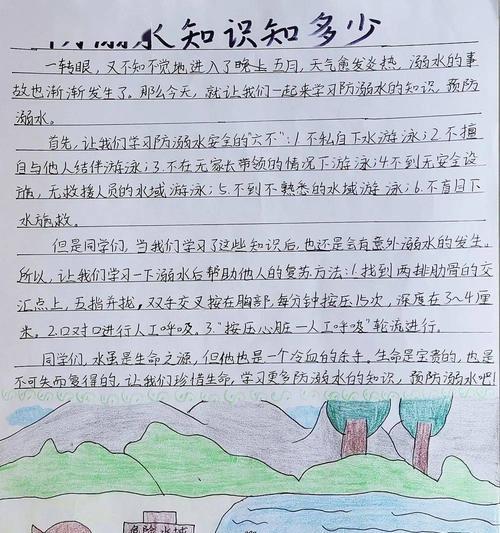 防溺水知识知多少
一转眼，又不知不觉地进入了晚上五月，天气愈发炎热。溺水的事
故也渐渐发生了。那么今天，就让我们一起来学习防溺水的知识，预防
溺水。
首先，让我们学习防溺水安全的"六不"：1不私自下水游泳；2不擅
自与他人结伴游泳；3.不在无家长带领的情况下游泳4不到无安全设
施，无救援人员的水域游泳；5.不到不熟悉的水域游泳；6.不盲目下
水施救。
但是同学们，当我们学习了这些知识后，也还是会有意外溺水的发生。
所以，让我们学习一下溺水后帮助他人的复苏方法：1.找到两排肋骨的交
汇点上，五指并拢，双手交叉按在胸部，每分钟按压15次，深度在3~4厘
米。2.口对口进行人工呼吸。3."按压心脏一人工呼吸"轮流进行。
同学们，水虽是生命之源，但他也是一个冷血的杀手。生命是宝贵的，也是
不可失而复得的，让我们珍惜生命，学习更多防溺水的知识，预防溺水吧！
危险水域